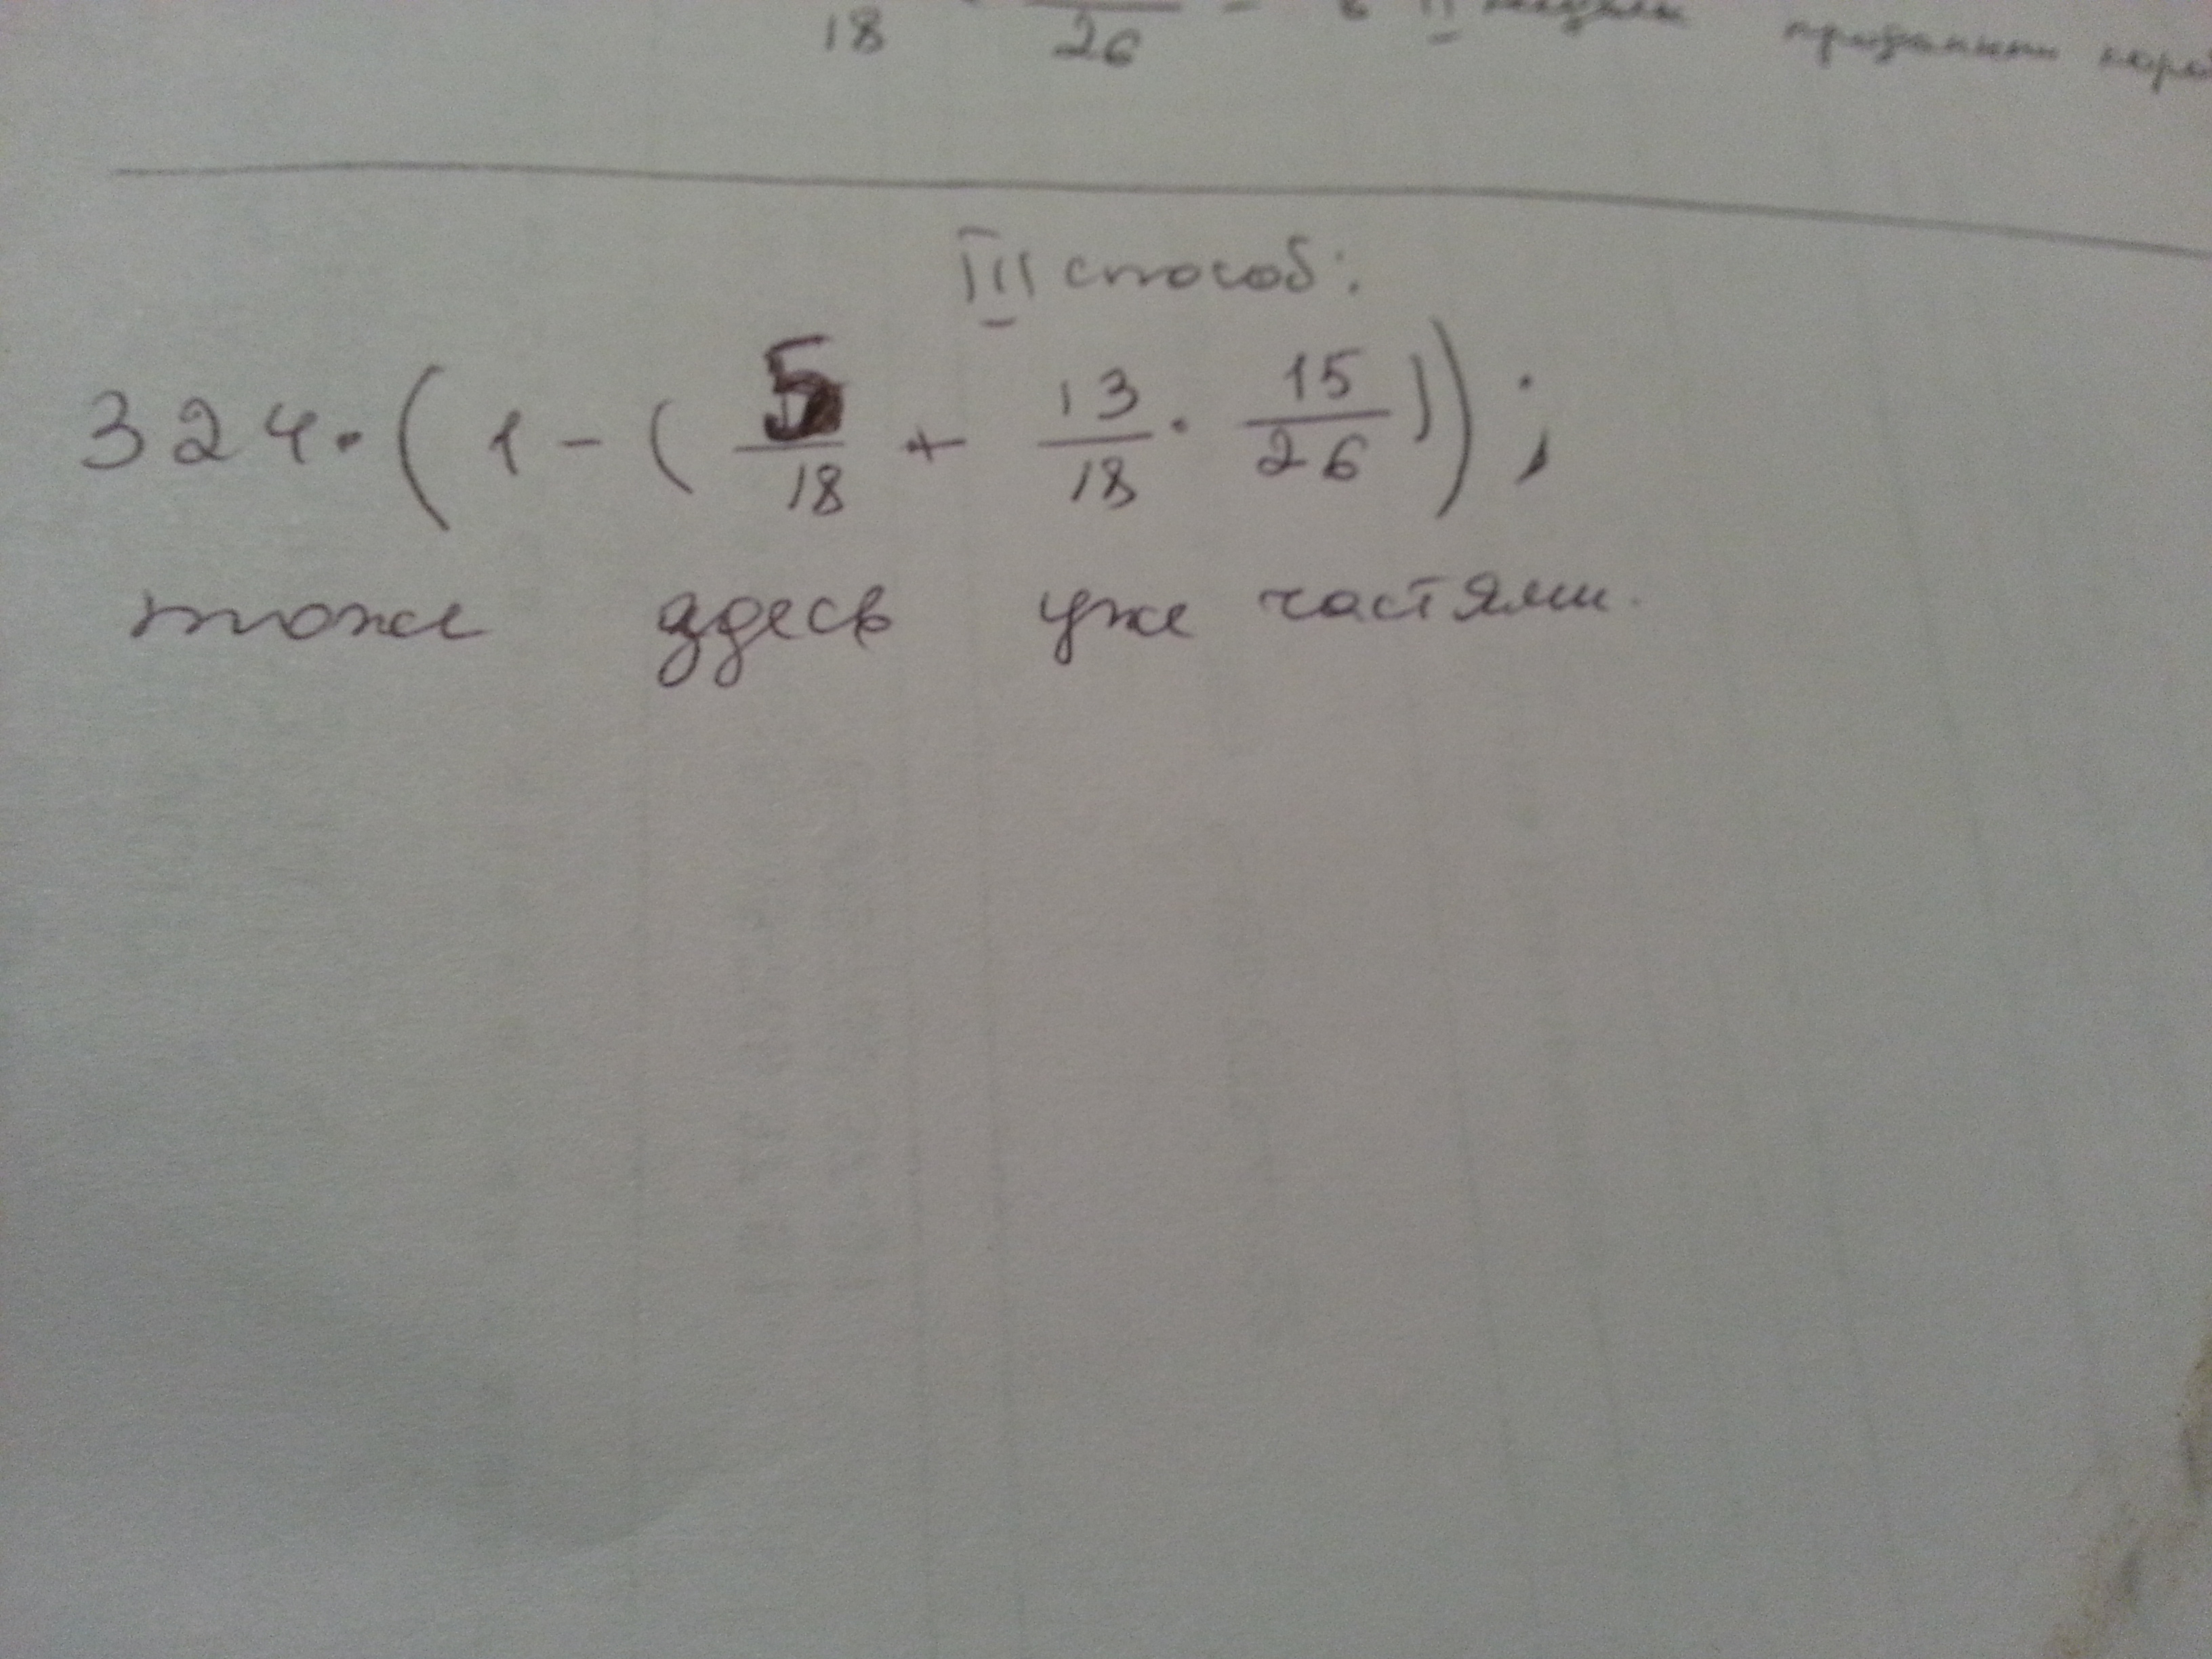 18 26 - в II
III способ:
324·(1-(5/18 + 13/18 · 15/26));
тоже здесь уже частями.